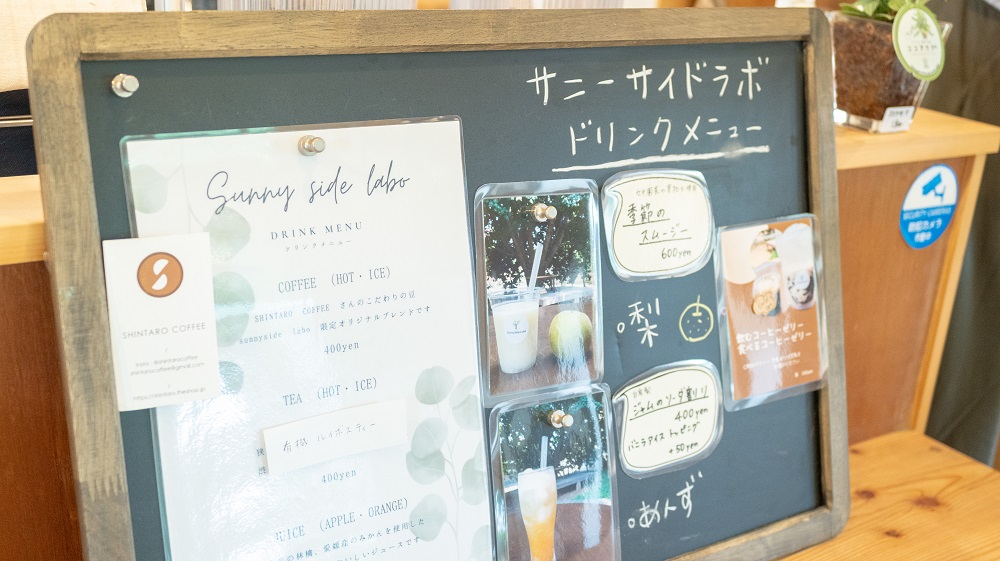 サニーサイドラボ
ドリンクメニュー
Sunny side labo
DRINK MENU
ドリンクメニュー
COFFEE (HOT・ICE)
SHINTARO COFFEE さんのこだわりの豆
sunnyside labo 限定オリジナルブレンドです
400yen
TEA (HOT・ICE)
有機 ルイボスティー
400yen
JUICE (APPLE・ORANGE)
の林檎、愛媛産のみかんを使用した
いしいジュースです
SHINTARO COFFEE
季節の
スムージー
600yen
梨
自家製
ジャムのソーダ割り
400yen
バニラアイストッピング
+50yen
あんず
飲むコーヒーゼリー
食べるコーヒーゼリー
SECURITY CAMERAS
防犯カメラ
作動中